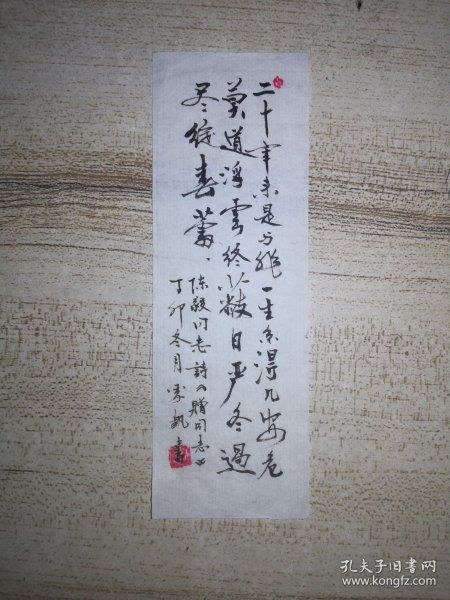 二十年来是与非一生系得几安危
莫道浮云终蔽日严冬过
尽绽春蕾、
陈毅同志詩《贈同志》
丁卯冬月
書
孔夫子旧书网
www.kongfz.com